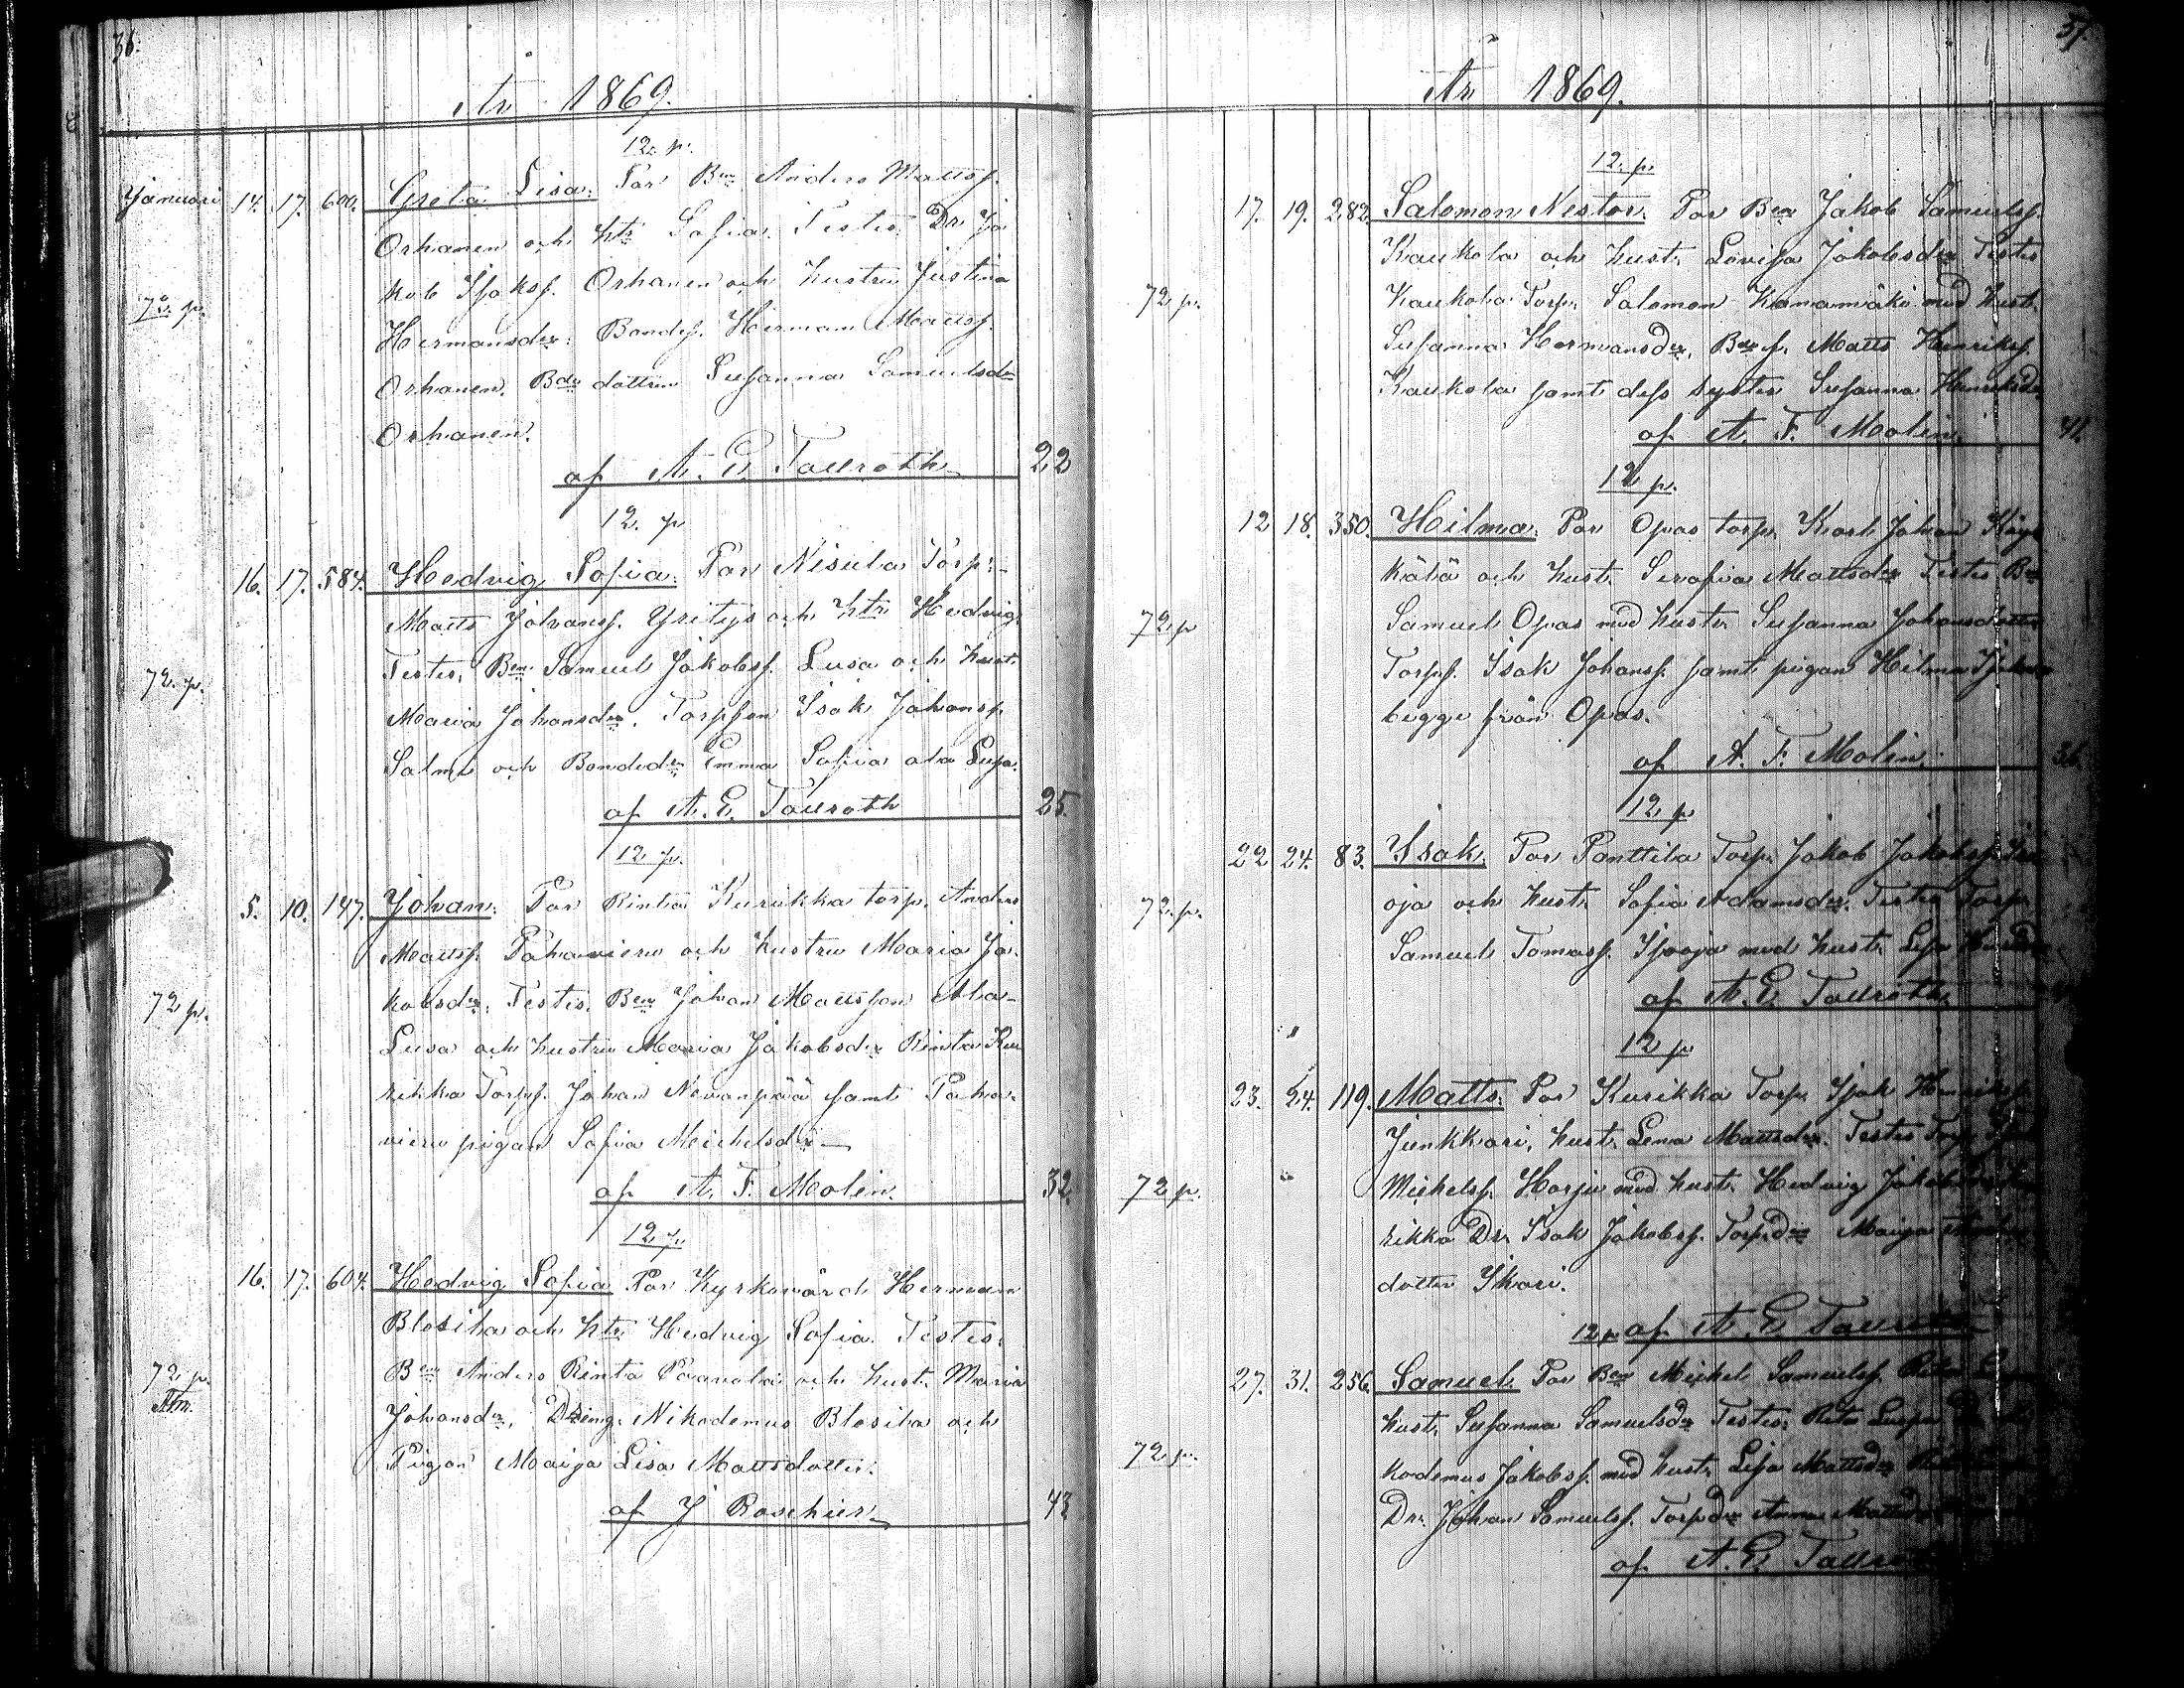 36.
År 1869.
12. p.
Januari 14. 17. 600. Greta Lisa. Par Bn Anders Mattsf.
Orhanen och htr Sofia. Testes. Dr Ja
kob Isaksf. Orhanen och hustru Justina
72. p.
Hermansdr. Bondes. Herman Mattsf.
Orhanen. Bde dottren Susanna Samuelsdr
Orhanen.
af A. E. Taurath 22
12. p
16. 17. 584. Hedvig Sofia. Par Nisula Torp.
Matts Johansf. Yritys och htr Hedvig.
Testes. Bn Samuel Jakobsf. Lusa och hust.
72. p.
Maria Johansdr. Torpson Isak Johansf.
Salmi och Bondedr Emma Sofia ala Lusa.
af A. E. Taurath 25.
12. p.
5. 10. 147. Johan. Par Rinta Kurikka torp. Anders
Mattsf. Pahaviern och hustru Maria Ja-
72 p.
kobsdr. Testes. Bn Johan Mattsson Ala-
Lusa och hustru Maria Jakobsdr Rinta Ku
rikka Torps. Johan Nevanpää samt Paha-
viern pigan Sofia Michelsdr
af A. F. Molin. 32
12 p.
16. 17. 604. Hedvig Sofia Par Kyrkovärd Herman
Blosila och htr Hedvig Sofia. Testes.
72 p.
Bn Anders Rinta Paavola och hust. Maria
Johansdr. Dräng. Nikodemus Blosila och
Pigan Maija Lisa Mattsdotter.
af J Roschier 43
37.
År 1869.
12. p.
17. 19. 282. Salomon Nestor. Par Bn Jakob Samuelsf.
Kaukola och hust. Lovisa Jakobsdr Testes
72 p.
Kaukola Torp. Salomon Kanamäki med hust.
Susanna Hermansdr. Bes. Matts Henriksf.
Kaukola samt dess syster Susanna Henriksdr
af A. F. Molin. 41.
12 p.
12 18. 350. Hilma. Par Opas torp. Karl Johan Käy
kätä och hust. Serafia Mattsdr Testes Bn
72 p
Samuel Opas med hustr Susanna Johansdotter
Torps. Isak Johansf. samt pigan Hilma
begge från Opas.
af A. F. Molin. 36.
12 p
22 24. 83. Isak. Par Panttila Torp. Jakob Jakobsf.
72. p.
oja och hust. Sofia Adamsdr. Testes Torp.
Samuel Tomasf. Isooja med hust. Lisa
af A. E. Taurath
12 p
23. 24. 119. Matts. Par Kurikka Torp. Isak Henriksf.
Junkkari, hust. Lena Mattsdr. Testes Torp.
72 p.
Michelsf. Harju med hust. Hedvig Jakobsdr
rikka Dr. Isak Jakobsf. Torpdr Maija
dotter Ikari.
12 p af A. E. Taurath
27. 31. 256. Samuel. Par Bn Michel Samuelsf. Rita
hust. Susanna Samuelsdr Testes. Rita Luopa
72 p.
kodemus Jakobsf. med hust. Lisa Mattsdr
Dr. Johan Samuelsf. Torpdr Anna Mattsdr
af A. E. Taurath